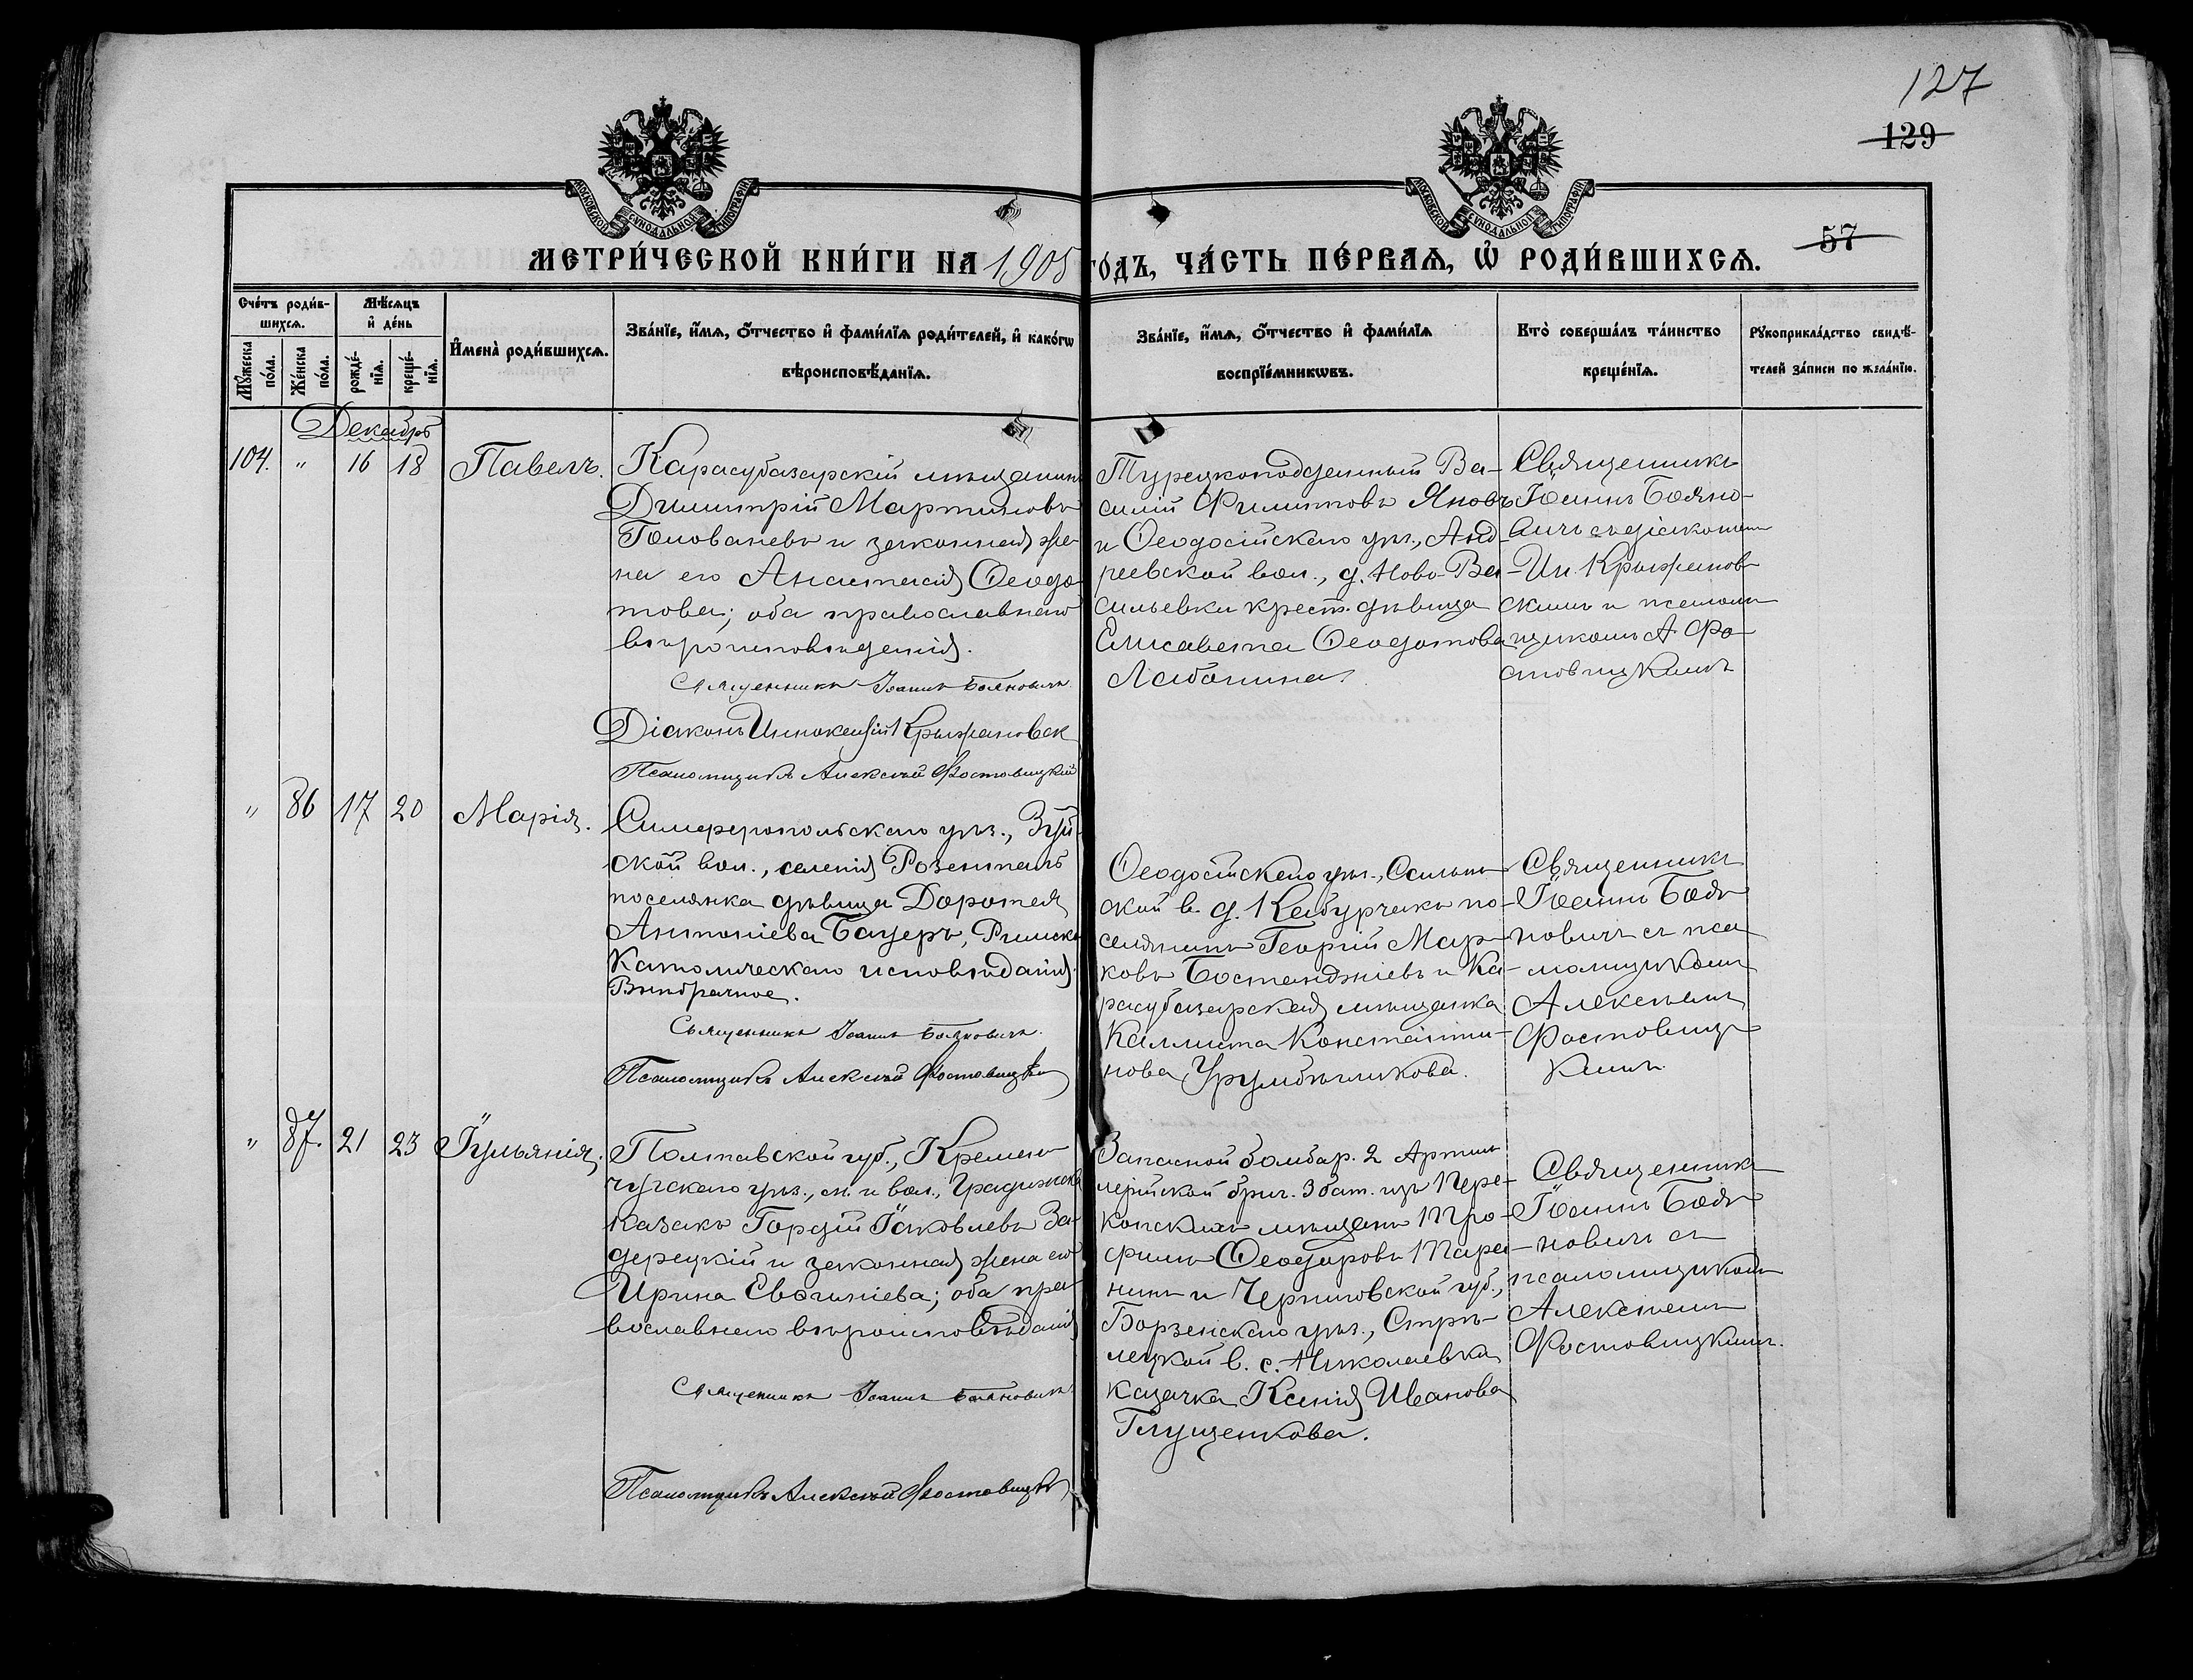 127
129
57
МОСКОВСКОЙ СѴНОДАЛЬНОЙ ТИПОГРАФІИ
МОСКОВСКОЙ СѴНОДАЛЬНОЙ ТИПОГРАФІИ
МЕТРИ́ЧЕСКОЙ КНИ́ГИ НА 1905 ГО́ДЪ, ЧА́СТЬ ПЕ́РВАѦ, Ѡ҆ РОДИ́ВШИХСѦ.
Сче́тъ роди́в-
шихсѧ.
Мѣ́сѧцъ
и҆ де́нь
Мꙋ́жеска
по́ла.
Же́нска
по́ла.
рожде́-
нїѧ.
креще́-
нїѧ.
И҆мена̀ роди́вшихсѧ.
Зва́нїе, и҆́мѧ, ѻ҆́тчество и҆ фами́лїѧ роди́телей, и҆ како́гѡ
вѣроисповѣ́данїѧ.
Зва́нїе, и҆́мѧ, ѻ҆́тчество и҆ фами́лїѧ
воспрїе́мникѡвъ.
Кто̀ соверша́лъ та́инство
креще́нїѧ.
Рꙋкоприкла́дство свидѣ́-
телей за́писи по жела́нїю.
Декабрь
104. " 16 18 Павелъ.
Карасубазарскій мѣщанинъ
Димитрій Мартиновъ
Голованевъ и законная же-
на его Анастасія Ѳеодо-
това; оба православнаго
вѣроисповѣденія.
Священникъ Іоаннъ Бояновичъ.
Діаконъ Иннокентій Крыжановск
Псаломщикъ Алексѣй Фостовицкій
Турецкоподданный Ва-
силій Филиповъ Яновъ
и Ѳеодосійскаго уѣз., Анд-
реевской вол., д. Ново-Ва-
сильевки крест. дѣвица
Елисавета Ѳеодотова
Лабонина.
Священникъ
Іоаннъ Бояно-
вичъ съ діакономъ
Ин. Крыжанов-
скимъ и псалом-
щикомъ А. Фо-
стовицкимъ
" 86 17 20 Марія.
Симферопольскаго уѣз., Зуй-
ской вол., селенія Розенталь
поселянка дѣвица Доротея
Антоніева Бауеръ, Римско-
Католическаго исповѣданія.
Внѣбрачное.
Священникъ Іоаннъ Бояновичъ.
Псаломщикъ Алексѣй Фостовицкій
Ѳеодосійскаго уѣз., Салын-
ской в. д. Кабурчакъ по-
селянинъ Георгій Мар-
ковъ Бостанджіевъ и Ка-
расубазарская мѣщанка
Каллиста Константи-
нова Урумбѣгликова.
Священникъ
Іоаннъ Боя-
новичъ съ пса-
ломщикомъ
Алексѣемъ
Фостовиц-
кимъ.
" 87. 21 23 Іульянія.
Полтавской губ., Кремен-
чугскаго уѣз., м. и вол., Градижска
казакъ Гордій Іаковлевъ За-
дерецкій и законная жена его
Ирина Евѳиміева; оба пра-
вославнаго вѣроисповѣданія
Священникъ Іоаннъ Бояновичъ.
Псаломщикъ Алексѣй Фостовицкій
Запасной бомбар. 2 Артил-
лерійской бриг. 3 бат. изъ Пере-
копскихъ мѣщанъ Тро-
фимъ Ѳеодоровъ Пара-
нинъ и Черниговской губ.,
Борзенскаго уѣз., Стрѣ-
лецкой в. с. Николаевка
казачка Ксенія Иванова
Глущенкова.
Священникъ
Іоаннъ Боя-
новичъ съ
псаломщикомъ
Алексѣемъ
Фостовицкимъ.